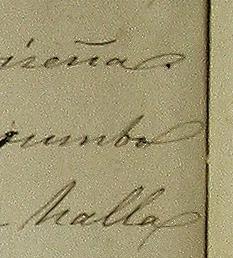 iseña.
rumbo
halla